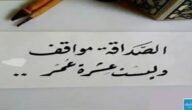 الصداقة مواقف
وليست عشرة عمر ..